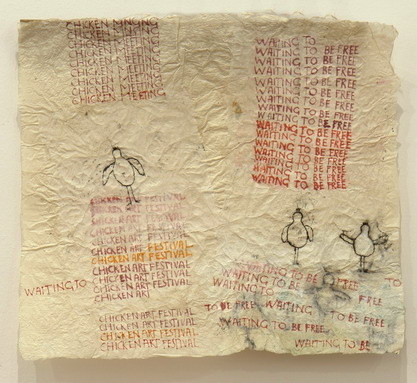 CHICKEN
CHICKEN MEETING
CHICKEN MEETING
CHICKEN MEETING
CHICKEN MEETING
CHICKEN MEETING
CHICKEN MEETING
CHICKEN MEETING
CHICKEN MEETING
WAITING TO
WAITING TO BE FREE
WAITING TO BE FREE
WAITING TO BE FREE
WAITING TO BE FREE
WAITING TO BE FREE
WAITING TO BE FREE
WAITING TO BE FREE
WAITING TO BE FREE
WAITING TO BE FREE
WAITING TO BE FREE
WAITING TO BE FREE
WAITING TO BE FREE
WAITING TO BE FREE
WAITING TO BE FREE
CHICKEN ART FESTIVAL
CHICKEN ART FESTIVAL
CHICKEN ART FESTIVAL
CHICKEN ART FESTIVAL
CHICKEN ART FESTIVAL
CHICKEN ART FESTIVAL
CHICKEN ART FESTIVAL
CHICKEN ART FESTIVAL
CHICKEN ART FESTIVAL
CHICKEN ART FESTIVAL
CHICKEN ART
WAITING TO
CHICKEN ART FESTIVAL
CHICKEN ART FESTIVAL
CHICKEN ART FESTIVAL
CHICKEN ART FESTIVAL
WAITING TO BE FREE
WAITING TO BE FREE
WAITING TO TO
FREE
TO BE FREE WAITING TO BE FREE
WAITING TO BE FREE
WAITING TO BE